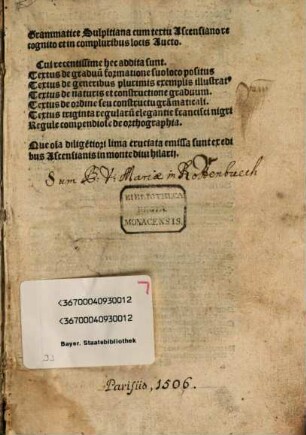 Grammatice Sulpitiana cum textu Ascensiano re
cognito et in compluribus locis Aucto.
Cui recentissime hec addita sunt.
Textus de graduũ formatione suo loco positus
Textus de generibus plurimis exemplis illustrat⁹
Textus de naturis et constructione graduum.
Textus de ordine seu constructu grãmaticali.
Textus triginta regularũ elegantie francisci nigri
Regule compendiose de orthographia.
Que oĩa diligẽtiori lima eructata emissa sunt ex edi
bus Ascensianis in monte diui hilarii.
Sum B. V. Mariæ in Rottenbuech
BIBLIOTHECA
REGIA
MONACENSIS.
<36700040930012
<36700040930012
Bayer. Staatsbibliothek
Parisiis, 1506.